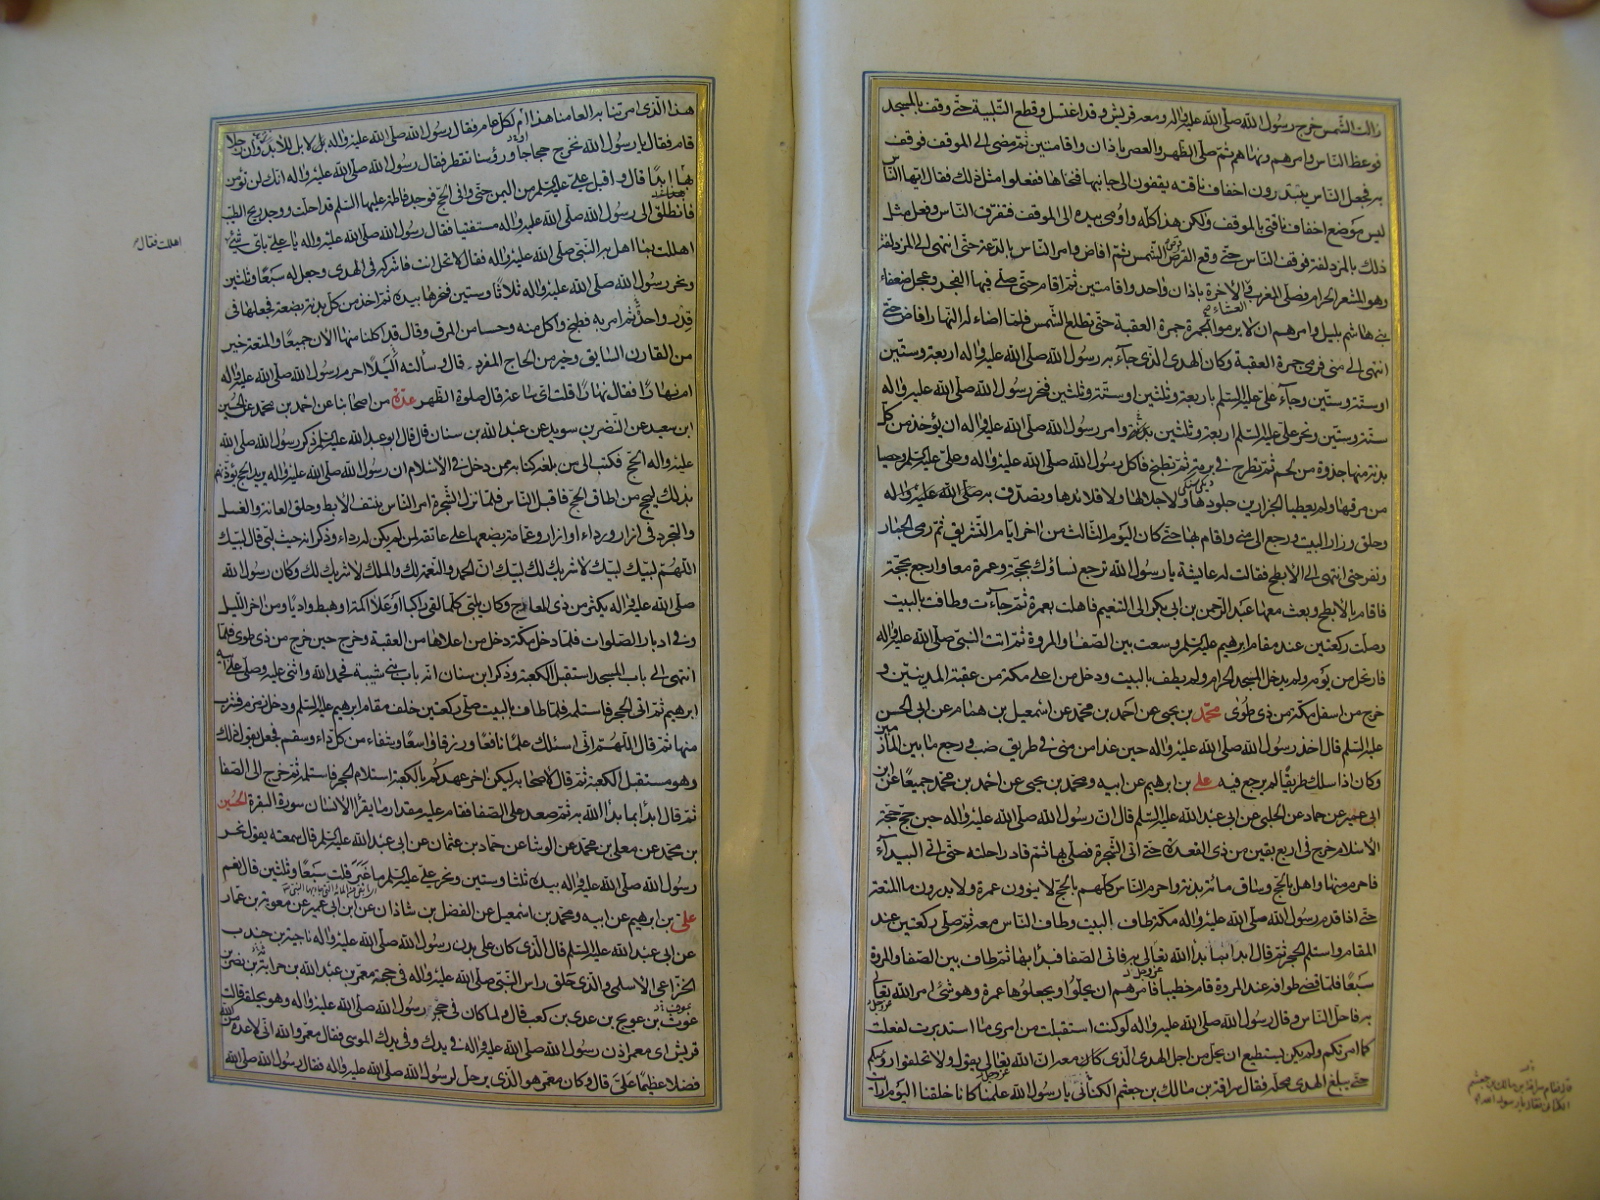 زالت الشمس خرج رسول الله صلى الله عليه واله ومعه قريش وقد اغتسل وقطع التلبية حتى وقف بالمسجد
فوعظ الناس وامرهم ونهاهم ثم صلى الظهر والعصر باذان واقامتين ثم مضى الى الموقف فوقف
به فجعل الناس يبتدرون اخفاف ناقته يقفون الى جانبها فنحاها ففعلوا مثل ذلك فقال ايها الناس
ليس موضع اخفاف ناقتى بالموقف ولكن هذا كله واومى بيده الى الموقف فتفرق الناس وفعل مثل
ذلك بالمزدلفة فوقف الناس حتى وقع القرص الشمس ثم افاض وامر الناس بالدعة حتى انتهى الى المزدلفة
وهو المشعر الحرام فصلى المغرب والعشاء الاخرة باذان واحد واقامتين ثم اقام حتى صلى فيها الفجر وعجل ضعفاء
بنى هاشم بليل وامرهم ان لا يرموا الجمرة جمرة العقبة حتى تطلع الشمس فلما اضاء له النهار افاض حتى
انتهى الى منى فرمى جمرة العقبة وكان الهدى الذى جاء به رسول الله صلى الله عليه واله اربعة وستين
او ستة وستين وجاء على عليه السلم باربعة وثلثين او ستة وثلثين فنحر رسول الله صلى الله عليه واله
ستة وستين ونحر على عليه السلم اربعة وثلثين بدنة وامر رسول الله صلى الله عليه واله ان يؤخذ من كل
بدنة منها جذوة من لحم ثم تطرح فى برمة ثم تطبخ فاكل رسول الله صلى الله عليه واله وعلى عليه السلم وحسيا
من مرقها ولم يعطيا الجزارين جلودها ولا جلالها ولا قلائدها وتصدق به صلى الله عليه واله
وحلق وزار البيت ورجع الى منى واقام بها حتى كان اليوم الثالث من اخر ايام التشريق ثم رمى الجمار
ونفر حتى انتهى الى الابطح فقالت له عايشة يا رسول الله ترجع نساؤك بحجة وعمرة معا وارجع بحجة
فاقام بالابطح وبعث معها عبد الرحمن بن ابى بكر الى التنعيم فاهلت بعمرة ثم جاءت وطافت بالبيت
وصلت ركعتين عند مقام ابرهيم عليه السلم وسعت بين الصفا والمروة ثم اتت النبى صلى الله عليه واله
فارتحل من يومه ولم يدخل المسجد الحرام ولم يطف بالبيت ودخل من اعلى مكة من عقبة المدنيين و
خرج من اسفل مكة من ذى طوى محمد بن يحيى عن احمد بن محمد عن اسمعيل بن همام عن ابى الحسن
عليه السلم قال اخذ رسول الله صلى الله عليه واله حين غدا من منى فى طريق ضب ورجع ما بين المازمين
وكان اذا سلك طريقا لم يرجع فيه على بن ابرهيم عن ابيه ومحمد بن يحيى عن احمد بن محمد جميعا عن ابن
ابى عمير عن حماد عن الحلبى عن ابى عبد الله عليه السلم قال ان رسول الله صلى الله عليه واله حين حج حجة
الاسلام خرج فى اربع بقين من ذى القعدة حتى اتى الشجرة فصلى بها ثم قاد راحلته حتى اتى البيداء
فاحرم منها واهل بالحج وساق مائة بدنة واحرم الناس كلهم بالحج لا ينوون عمرة ولا يدرون ما المتعة
حتى اذا قدم رسول الله صلى الله عليه واله مكة طاف بالبيت وطاف الناس معه ثم صلى ركعتين عند
المقام واستلم الحجر ثم قال ابدا بما بدا الله تعالى به فاتى الصفا فبدا بها ثم طاف بين الصفا والمروة
سبعا فلما قضى طوافه عند المروة قام خطيبا فامرهم ان يحلوا ويجعلوها عمرة وهو شئ امر الله تعالى
به فاحل الناس وقال رسول الله صلى الله عليه واله لو كنت استقبلت من امرى ما استدبرت لفعلت
كما امرتكم ولم يكن يستطيع ان يحل من اجل الهدى الذى كان معه ان الله تعالى يقول ولا تحلقوا رؤسكم
حتى يبلغ الهدى محله فقال سراقة بن مالك بن جعشم الكنانى يا رسول الله علمنا كانا خلقنا اليوم ارايت
هذا الذى امرتنا به العامنا هذا ام لكل عام فقال رسول الله صلى الله عليه واله بل لابل للابد وان رجلا
قام فقال يا رسول الله نخرج حجاجا ورؤسنا تقطر فقال رسول الله صلى الله عليه واله انك لن تؤمن
بها ابدا قال واقبل على عليه السلم من اليمن حتى وافى الحج فوجد فاطمة عليها السلم قد احلت ووجد ريح الطيب
فانطلق الى رسول الله صلى الله عليه واله مستفتيا فقال رسول الله صلى الله عليه واله يا على باى شئ
اهللت بما اهل به النبى صلى الله عليه واله فقال لا تحل انت فاشركه فى الهدى وجعل له سبعا وثلثين
ونحر رسول الله صلى الله عليه واله ثلاثا وستين فنحرها بيده ثم اخذ من كل بدنة بضعة فجعلها فى
قدر واحد ثم امر به فطبخ واكل منه وحسا من المرق وقال قد اكلنا منها الان جميعا والمتعة خير
من القارن السايق وخير من الحاج المفرد قال وسالته اليلا احرم رسول الله صلى الله عليه واله
ام نهارا فقال نهارا قلت اى ساعة قال صلوة الظهر عدة من اصحابنا عن احمد بن محمد عن الحسين
ابن سعيد عن النضر بن سويد عن عبد الله بن سنان قال قال ابو عبد الله عليه السلم ذكر رسول الله صلى الله
عليه واله الحج فكتب الى من بلغه كتابه ممن دخل فى الاسلام ان رسول الله صلى الله عليه واله يريد الحج يؤذنهم
بذلك ليحج من اطاق الحج فاقبل الناس فلما نزل الشجرة امر الناس بنتف الابط وحلق العانة والغسل
والتجرد فى ازار ورداء او ازار وعمامة يضعها على عاتقه لمن لم يكن له رداء وذكر انه حيث لبى قال لبيك
اللهم لبيك لبيك لا شريك لك لبيك ان الحمد والنعمة لك والملك لا شريك لك وكان رسول الله
صلى الله عليه واله يكثر من ذى المعارج وكان يلبى كلما لقى راكبا او علا اكمة او هبط واديا ومن اخر الليل
وفى ادبار الصلوات فلما دخل مكة دخل من اعلاها من العقبة وخرج حين خرج من ذى طوى فلما
انتهى الى باب المسجد استقبل الكعبة وذكر ابن سنان انه باب بنى شيبة فحمد الله واثنى عليه وصلى على ابيه
ابرهيم ثم اتى الحجر فاستلمه فلما طاف بالبيت صلى ركعتين خلف مقام ابرهيم عليه السلم ودخل زمزم فشرب
منها ثم قال اللهم انى اسئلك علما نافعا ورزقا واسعا وشفاء من كل داء وسقم فجعل يقول ذلك
وهو مستقبل الكعبة ثم قال لاصحابه ليكن اخر عهدكم بالكعبة استلام الحجر فاستلمه ثم خرج الى الصفا
ثم قال ابدا بما بدا الله به ثم صعد على الصفا فقام عليه مقدار ما يقرا الانسان سورة البقرة الحسين
بن محمد عن معلى بن محمد عن الوشا عن حماد بن عثمان عن ابى عبد الله عليه السلم قال سمعته يقول نحر
رسول الله صلى الله عليه واله بيده ثلثا وستين ونحر على عليه السلم ما غبر قلت سبعا وثلثين قال نعم
على بن ابرهيم عن ابيه ومحمد بن اسمعيل عن الفضل بن شاذان عن ابن ابى عمير عن معوية بن عمار
عن ابى عبد الله عليه السلم قال الذى كان على بدن رسول الله صلى الله عليه واله ناجية بن جندب
الخزاعى الاسلمى والذى حلق راس النبى صلى الله عليه واله فى حجته معمر بن عبد الله بن حراثة بن نصر بن
عوف بن عويج بن عدى بن كعب قال ولما كان فى حجة رسول الله صلى الله عليه واله وهو يحلقه قالت
قريش اى معمر اذن رسول الله صلى الله عليه واله فى يدك وفى يدك الموسى فقال معمر والله انى لاعده من الله
فضلا عظيما على قال وكان معمر هو الذى يرحل لرسول الله صلى الله عليه واله فقال رسول الله صلى الله
اهللت فقال